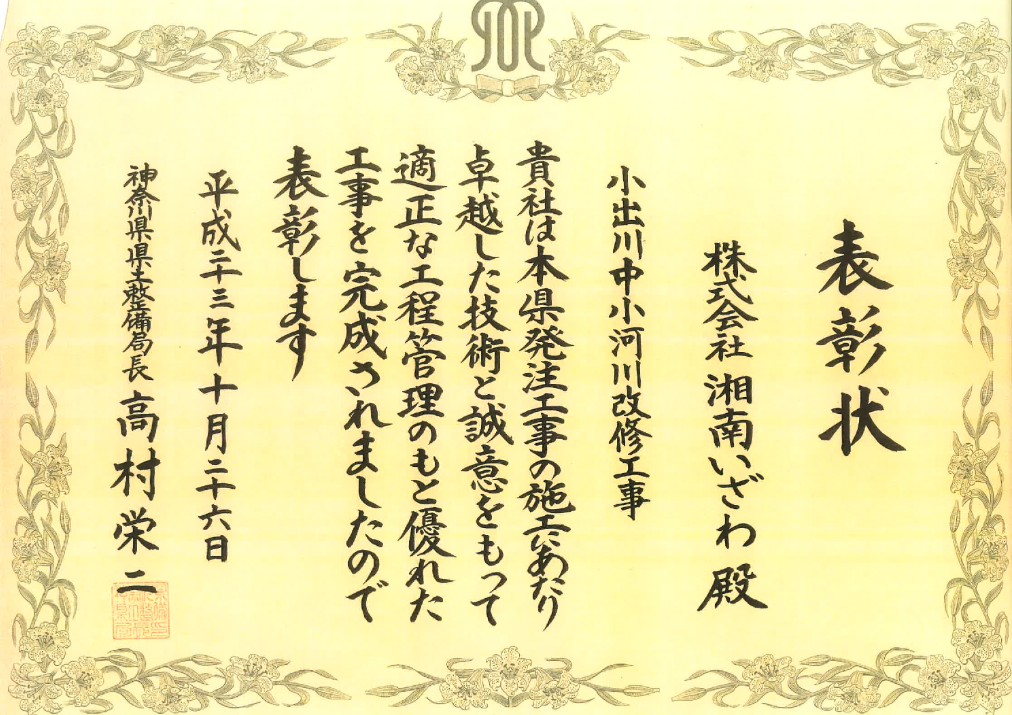 表彰状
株式会社 湘南いざわ 殿
小出川中小河川改修工事
貴社は本県発注工事の施工にあたり
卓越した技術と誠意をもって
適正な工程管理のもと優れた
工事を完成されましたので
表彰します
平成二十三年十月二十六日
神奈川県県土整備局長 高村栄二